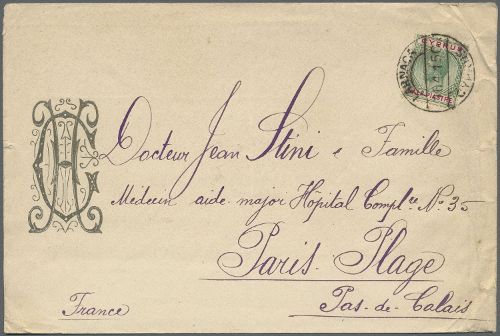 LARNACA
CYPRUS
PIASTRE
Docteur Jean Stini & Famille
Médecin aide major Hôpital Compl.re No 35
Paris-Plage
Pas-de-Calais
France